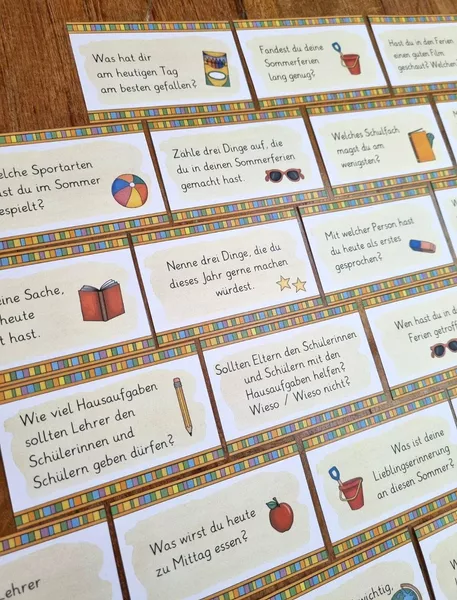 Was hat dir
am heutigen Tag
am besten gefallen?
Fandest du deine
Sommerferien
lang genug?
Hast du in den Ferien
einen guten Film
geschaut? Welchen?
Sportarten
du im Sommer
gespielt?
Zähle drei Dinge auf, die
du in deinen Sommerferien
gemacht hast.
Welches Schulfach
magst du am
wenigsten?
eine Sache,
heute
hast.
Nenne drei Dinge, die du
dieses Jahr gerne machen
würdest.
Mit welcher Person hast
du heute als erstes
gesprochen?
Wie viel Hausaufgaben
sollten Lehrer den
Schülerinnen und
Schülern geben dürfen?
Sollten Eltern den Schülerinnen
und Schülern mit den
Hausaufgaben helfen?
Wieso / Wieso nicht?
Wen hast du in d
Ferien getroff
Lehrer
Was wirst du heute
zu Mittag essen?
Was ist deine
Lieblingserinnerung
an diesen Sommer?
wichtig,